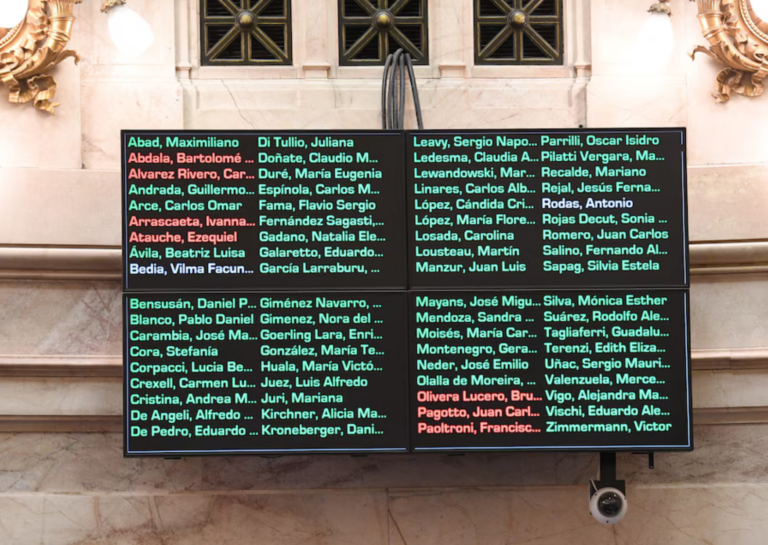 Abad, Maximiliano
Abdala, Bartolomé ...
Alvarez Rivero, Car...
Andrada, Guillermo...
Arce, Carlos Omar
Arrascaeta, Ivanna...
Atauche, Ezequiel
Ávila, Beatriz Luisa
Bedia, Vilma Facun...
Bensusán, Daniel P...
Blanco, Pablo Daniel
Carambia, José Ma...
Cora, Stefanía
Corpacci, Lucía Be...
Crexell, Carmen Lu...
Cristina, Andrea M...
De Angeli, Alfredo ...
De Pedro, Eduardo ...
Di Tullio, Juliana
Doñate, Claudio M...
Duré, María Eugenia
Espínola, Carlos M...
Fama, Flavio Sergio
Fernández Sagasti,...
Gadano, Natalia Ele...
Galaretto, Eduardo...
García Larraburu, ...
Giménez Navarro, ...
Gimenez, Nora del ...
Goerling Lara, Enri...
González, María Te...
Huala, María Victó...
Juez, Luis Alfredo
Juri, Mariana
Kirchner, Alicia Ma...
Kroneberger, Dani...
Leavy, Sergio Napo...
Ledesma, Claudia A...
Lewandowski, Mar...
Linares, Carlos Alb...
López, Cándida Cri...
López, María Flore...
Losada, Carolina
Lousteau, Martín
Manzur, Juan Luis
Mayans, José Migu...
Mendoza, Sandra ...
Moisés, María Car...
Montenegro, Gera...
Neder, José Emilio
Olalla de Moreira, ...
Olivera Lucero, Bru...
Pagotto, Juan Carl...
Paoltroni, Francisc...
Parrilli, Oscar Isidro
Pilatti Vergara, Ma...
Recalde, Mariano
Rejal, Jesús Ferna...
Rodas, Antonio
Rojas Decut, Sonia ...
Romero, Juan Carlos
Salino, Fernando Al...
Sapag, Silvia Estela
Silva, Mónica Esther
Suárez, Rodolfo Ale...
Tagliaferri, Guadalu...
Terenzi, Edith Eliza...
Uñac, Sergio Mauri...
Valenzuela, Merce...
Vigo, Alejandra Ma...
Vischi, Eduardo Ale...
Zimmermann, Victor